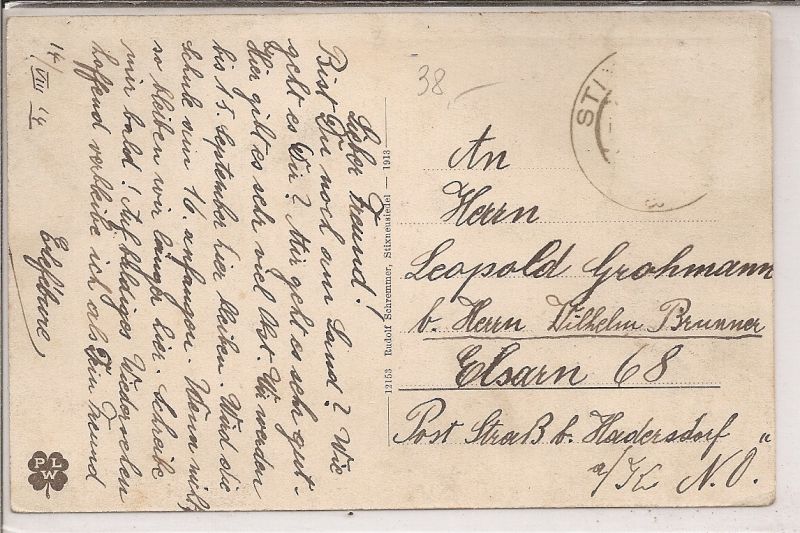 Lieber Freund!
Bist Du noch am Land? Wie
geht es Dir? Mir geht es sehr gut.
Hier gibt es sehr viel Obst. Wir werden
bis 15. September hier bleiben. Wird die
Schule am 16. anfangen. Wenn nicht,
so bleiben wir länger hier. Schreibe
mir bald! Auf baldiges Wiedersehen
hoffend verbleibe ich als Dein Freund
14/VIII 24
12153 Rudolf Schremmer, Stixneusiedel — 1913
38,
STI
An
Herrn
Leopold Grohmann
b. Herrn Wilhelm Brunner
Elsarn 68
Post Straß b. Hadersdorf
a/K N.Ö.
PLW